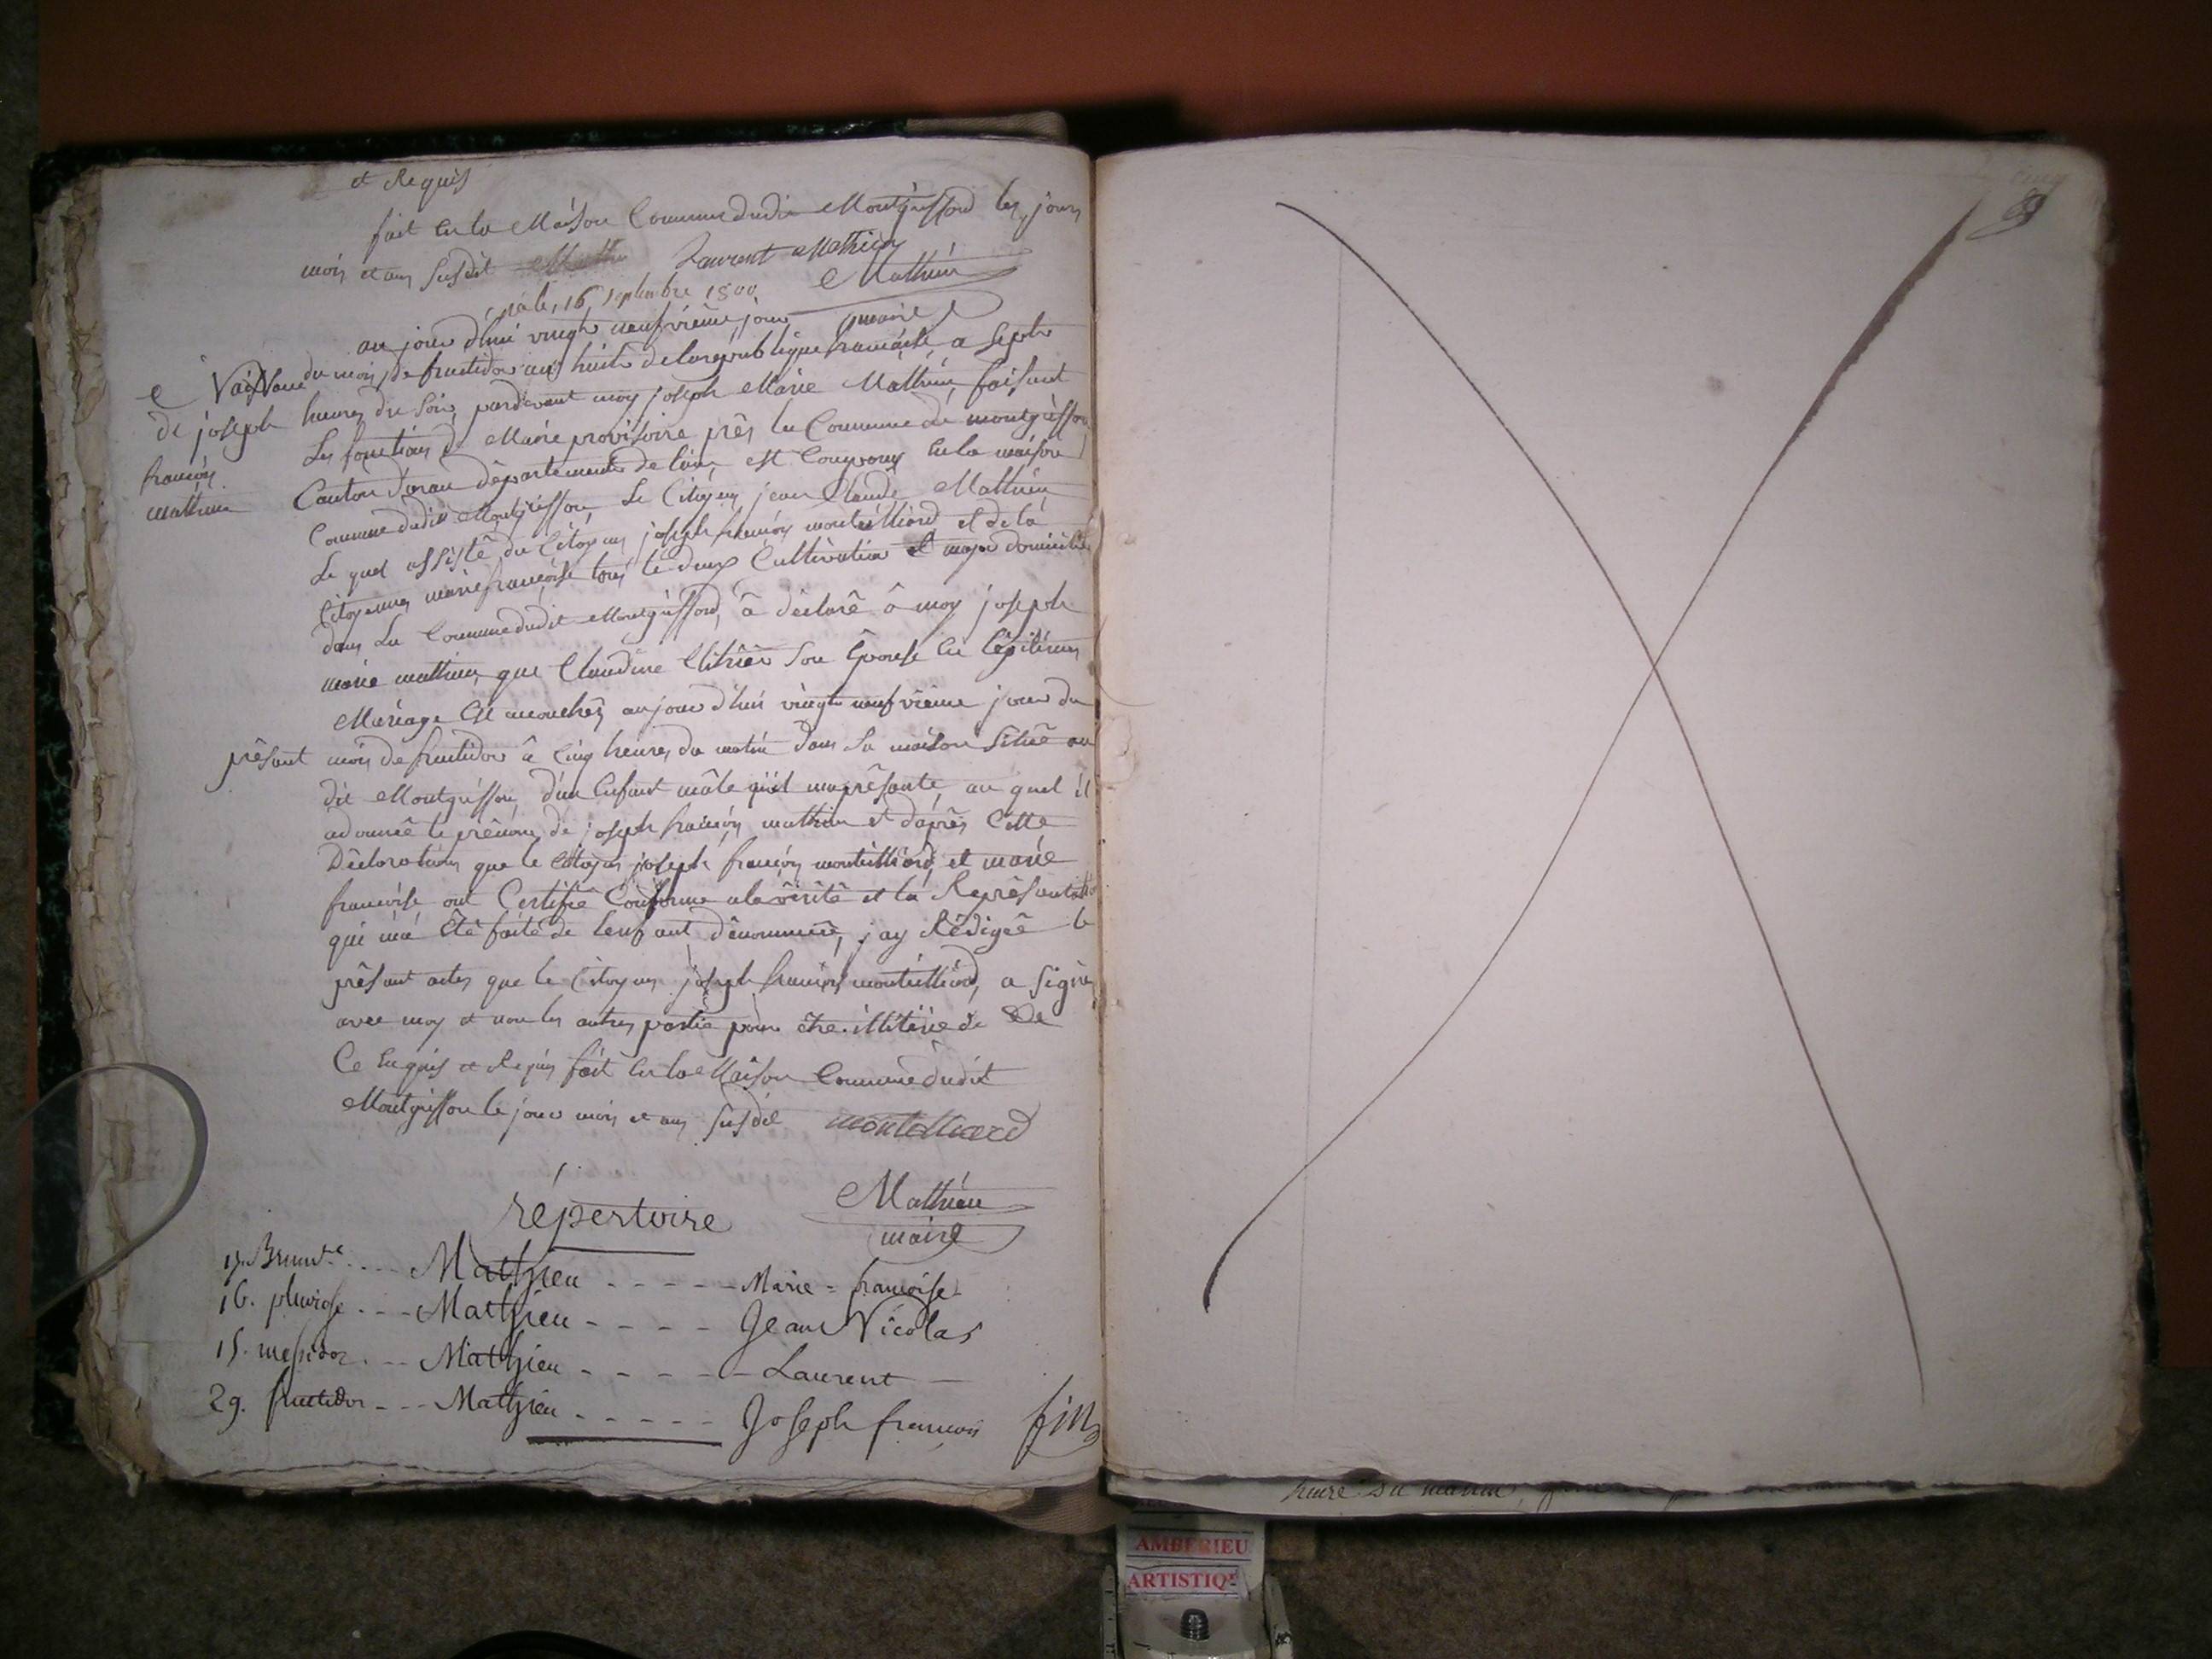 et Requis
fait en la Maison Commune dudit Montgriffond les jours
mois et ans susdit Laurent Mathieu
Mathieu
maire
16 septembre 1800
au jour d'hui vingt neuf vieme jour
Naissance
de joseph
francois
mathieu
du mois de fructidor ans huite de la republique francaise a septe
heures du soir pardevant moy joseph Marie Mathieu faisant
Les fonctions de Maire provisoire près la Commune de montgriffon
Canton departement de lain, est en la maison
Commune dudit Montgriffon Le Citoyen jean Claude Mathieu
Le quel assisté du Citoyen joseph francois montilliard et de la
Citoyenne marie francoise tous le deux Cultivateur et major domiciliés
dans La Commune dudit Montgriffond, â déclarê â moy joseph
marie mathieu que Claudine son Êpouse en légitimes
Mariage est accouchéz aujour d'hui vingt neuf vieme jour du
prêsant mois de fructidor â Cinq heures du matin dans sa maison Située au
dit Montgriffon, d'un Enfant mâle qu'il ma prêsanté, au quel il
a donneê le prênom de joseph francois mathieu et d'après Cette
Dêclaration que le Citoyen joseph francois montilliard, et marie
francoise ont Certifiê Conforme a la vêritê et la Reprêsantation
qui m'a Êtê faite de lenfant dênommeê, jay Rêdigeê le
prêsant actes que le Citoyen joseph francois montilliard, a signés
avec moy et non les autres partie pour être illitéré de De
Ce Enquis et Requis fait en la Maison Commune dudit
Montgriffon le jour mois et ans susdit montilliard
Mathieu
maire
répertoire
Mathieu - - - - - Marie = francoise
16. pluviose - - - Mathieu - - - - Jean Nicolas
15. messidor - - - Mathieu - - - - - Laurent
29. fructidor - - - Mathieu - - - - - Joseph francois fin
heure du matin,
AMBERIEU
ARTISTIQ